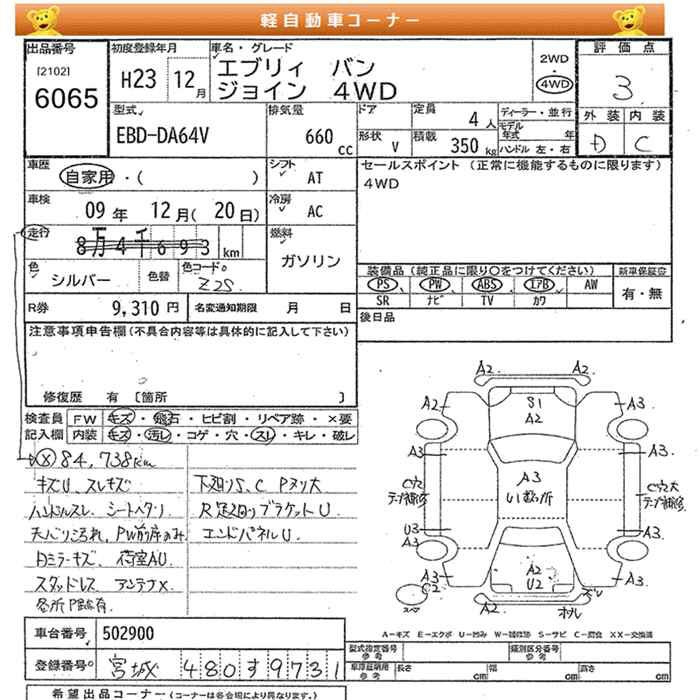 軽自動車コーナー
出品番号 [2102] 6065
初度登録年月 H23 12月
車名・グレード エブリィ バン ジョイン 4WD
2WD 4WD
評価点 3
外装 D 内装 C
型式 EBD-DA64V
排気量 660 cc
ドア
形状 V
定員 4人
積載 350 kg
ディーラー・並行
モデル年式 年
ハンドル 左・右
車歴 自家用・( )
シフト AT
セールスポイント (正常に機能するものに限ります)
4WD
車検 09年 12月(20日)
冷房 AC
走行 8万4千693 km
燃料 ガソリン
色 シルバー 色替 色コード Z2S
装備品(純正品に限り○をつけてください)
新車保証書
PS PW ABS エアB AW
SR ナビ TV カワ
有・無
R券 9,310円 名変通知期限 月 日
後日品
注意事項申告欄(不具合内容等は具体的に記入して下さい)
修復歴 有 [箇所 ]
検査員記入欄 FW キズ・飛石・ヒビ割・リペア跡・×要
内装 キズ・汚レ・コゲ・穴・スレ・キレ・破レ
Ⓧ84,738km
キズU、スレキズ 下廻りS、C Pヌリ大
ハンドルスレ シートヘタリ R足廻りブラケットU
天バリ汚れ、PW前席のみ エンドパネルU
Dミラーキズ 荷室AU
スタッドレス アンテナX
各所P跡有
A2
A2 S1 A2 A3
A3 A3
A3 U1数ヶ所
C穴 テープ補修
C穴大 テープ補修
U3 A3 A3
A3 C2 A2 U2 A3
スペ A2 ズレ
オレ
A-キズ E-エクボ U-凹み W-補修跡 S-サビ C-腐食 XX-交換済
車台番号 502900
型式指定番号 参考 類別区分番号 参考
登録番号 宮城 480す9731
車庫証明用参考 長さ cm 幅 cm 高さ cm
希望出品コーナー (コーナーは各会場により異なります。)